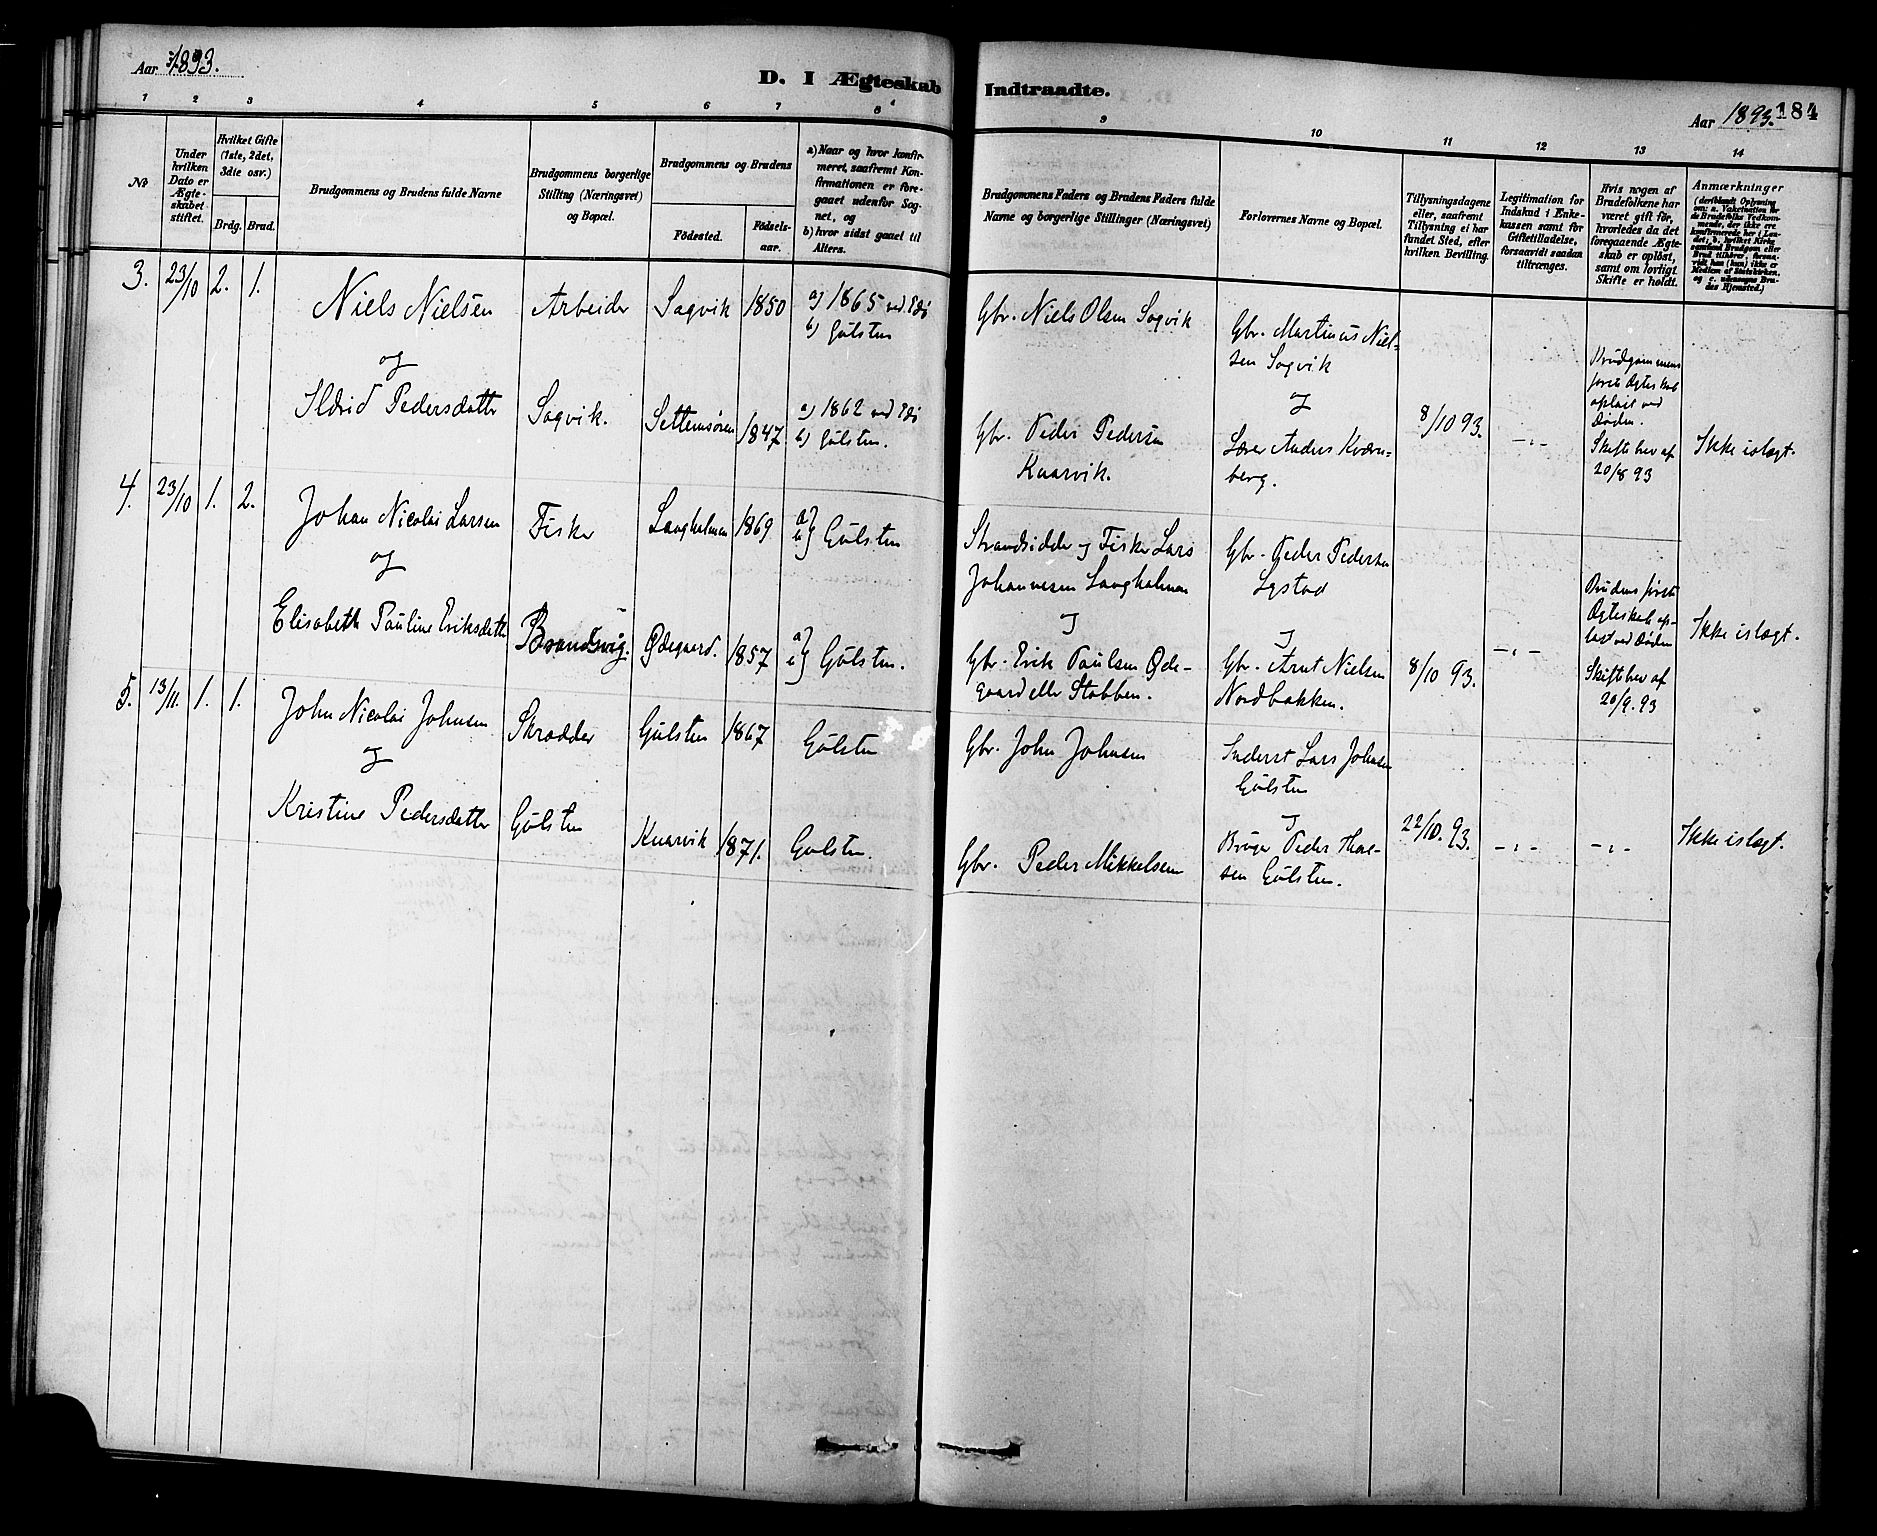 Aar 1893.
D. I Ægteskab Indtraadte.
Aar 1893. 184
1 2 3 4 5 6 7 8 9 10 11 12 13 14
No
Under hvilken Dato er Ægteskabet stiftet.
Hvilket Gifte (1ste, 2det, 3die osv.)
Brdg. Brud.
Brudgommens og Brudens fulde Navne
Brudgommens borgerlige Stilling (Næringsvei) og Bopæl.
Brudgommens og Brudens
Fødested.
Fødselsaar.
a) Naar og hvor konfirmeret, saafremt Konfirmationen er foregaaet udenfor Sognet, og
b) hvor sidst gaaet til Alters.
Brudgommens Faders og Brudens Faders fulde Navne og borgerlige Stillinger (Næringsvei)
Forlovernes Navne og Bopæl.
Tillysningsdagene eller, saafremt Tillysning ei har fundet Sted, efter hvilken Bevilling.
Legitimation for Indskud i Enkekassen samt for Giftetilladelse, forsaavidt saadan tiltrænges.
Hvis nogen af Brudefolkene har været gift før, hvorledes da det foregaaende Ægteskab er opløst, samt om lovligt Skifte er holdt.
Anmærkninger
3. 23/10 2. 1.
Niels Nielsen
og
Ildrid Pedersdatter
Arbeider
Sagvik.
Sagvik 1850
Settemsøren 1847.
a) 1865 ved Edø
b) Gulsten
a) 1862 ved Edø
b) Gulsten.
Gbr. Niels Olsen Sagvik
Gbr. Peder Pedersen
Knarvik.
Gbr. Martinus Niel-
sen Sagvik
og
Lærer Anders Kværn-
berg.
8/10 93.
-"-
Brudgommens
første Ægteskab
opløst ved
Døden.
Skiftebrev af
20/8 93
Ikke islagt.
4. 23/10 1. 2.
Johan Nicolai Larsen
og
Elisabeth Pauline Eriksdatter
Fisker
Brandsvig.
Langholmen 1869
Ødegaard. 1857
a) b) Gulsten
a) b) Gulsten.
Strandsidder og Fisker Lars
Johannesen Langholmen
og
Gbr. Erik Paulsen Øde-
gaard eller Stobben.
Gbr. Peder Pedersen
Lystad
og
Gbr. Arnt Nielsen
Nordbakken.
8/10 93.
-"-
Brudens første
Ægteskab op-
løst ved Døden
Skiftebrev af
20/9. 93
Ikke islagt.
5. 13/11. 1. 1.
John Nicolai Johnsen
og
Kristine Pedersdatter
Skrædder
Gulsten
Gulsten 1867
Knarvik 1871.
Gulsten
Gulsten.
Gbr. John Johnsen
Gbr. Peder Mikkelsen
Inderst Lars Johnsen
Gulsten
og
Bruger Peder
Gulsten.
22/10. 93.
-"-
-"-
Ikke islagt.